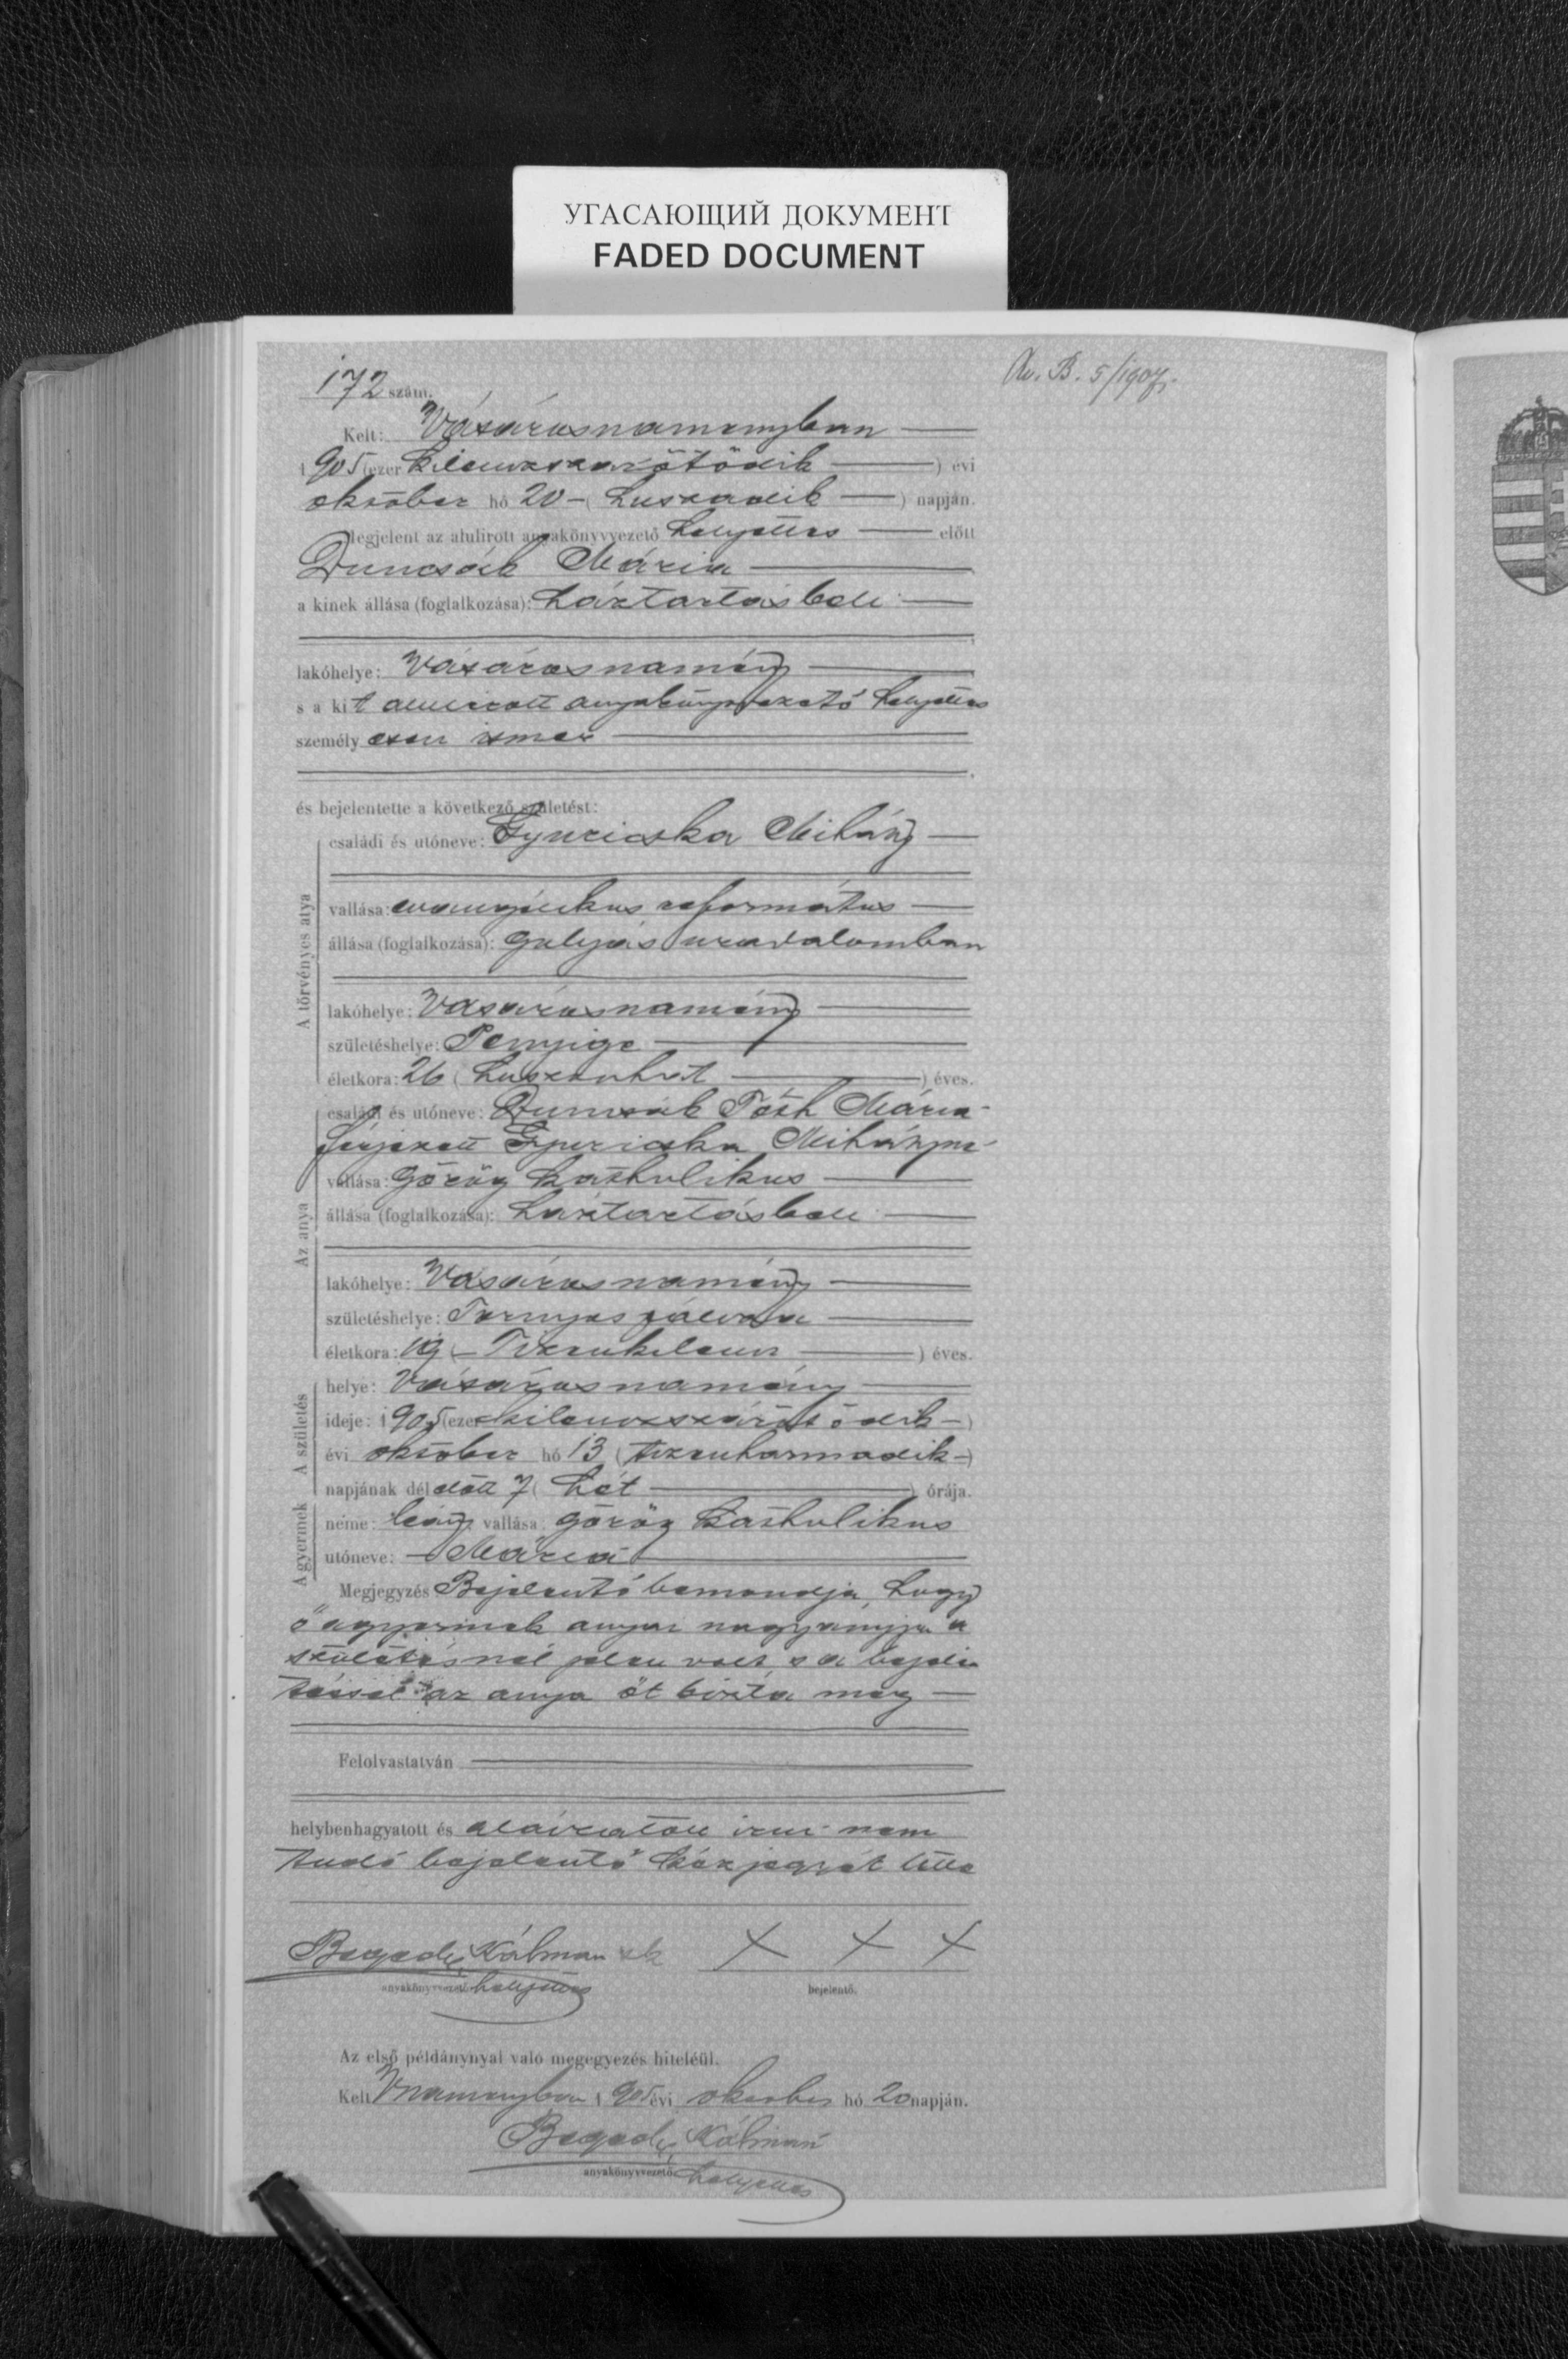 УГАСАЮЩИЙ ДОКУМЕНТ
FADED DOCUMENT
172 szám.
Av. B. 5/1907.
Kelt: Vásárosnaményban
1905 (ezer kilenczszázötödik) évi
október hó 20 (huszadik) napján.
Megjelent az alulirott anyakönyvvezető helyettes előtt
Duncsák Mária
a kinek állása (foglalkozása): háztartásbeli
lakóhelye: Vásárosnamény
s a kit alulirott anyakönyvvezető helyettes
személyesen ismer
és bejelentette a következő születést:
A törvényes atya
családi és utóneve: Gyuricska Mihály
vallása: evangélikus református
állása (foglalkozása): gulyás uradalomban
lakóhelye: Vásárosnamény
születéshelye: Penyige
életkora: 26 (huszonhat) éves.
Az anya
családi és utóneve: Duncsák Tóth Mária
férjezett Gyuricska Mihályné
vallása: görög katholikus
állása (foglalkozása): háztartásbeli
lakóhelye: Vásárosnamény
születéshelye: Tornyospálcza
életkora: 19 (Tizenkilencz) éves.
A születés
helye: Vásárosnamény
ideje: 1905 (ezer kilenczszázötödik)
évi október hó 13 (tizenharmadik)
napjának délelőtt 7 (hét) órája.
A gyermek
neme: leány vallása: görög katholikus
utóneve: Mária
Megjegyzés Bejelentő bemondja, hogy
ő a gyermek anyai nagyanyja a
születésnél jelen volt s a bejelen
téssel az anya őt bizta meg
Felolvastatván
helybenhagyatott és aláíratott irni nem
tudó bejelentő kézjegyét tette
Bagody Kálmán sk
anyakönyvvezető helyettes
x x x
bejelentő.
Az első példánynyal való megegyezés hiteléül.
Kelt Vnaményban 1905 évi október hó 20 napján.
Bagody Kálmán
anyakönyvvezető helyettes